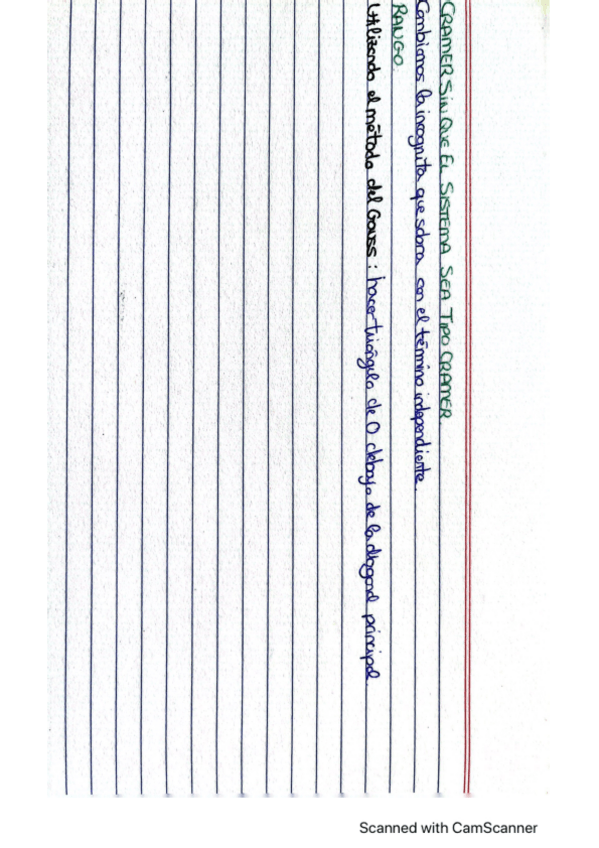 CRAMER SIN QUE EL SISTEMA SEA TIPO CRAMER.
Cambiamos la incognita que sobra con el término independiente.
RANGO.
Utilizando el método del Gauss: hacer triángulo de 0 debajo de la diagonal principal.
Scanned with CamScanner